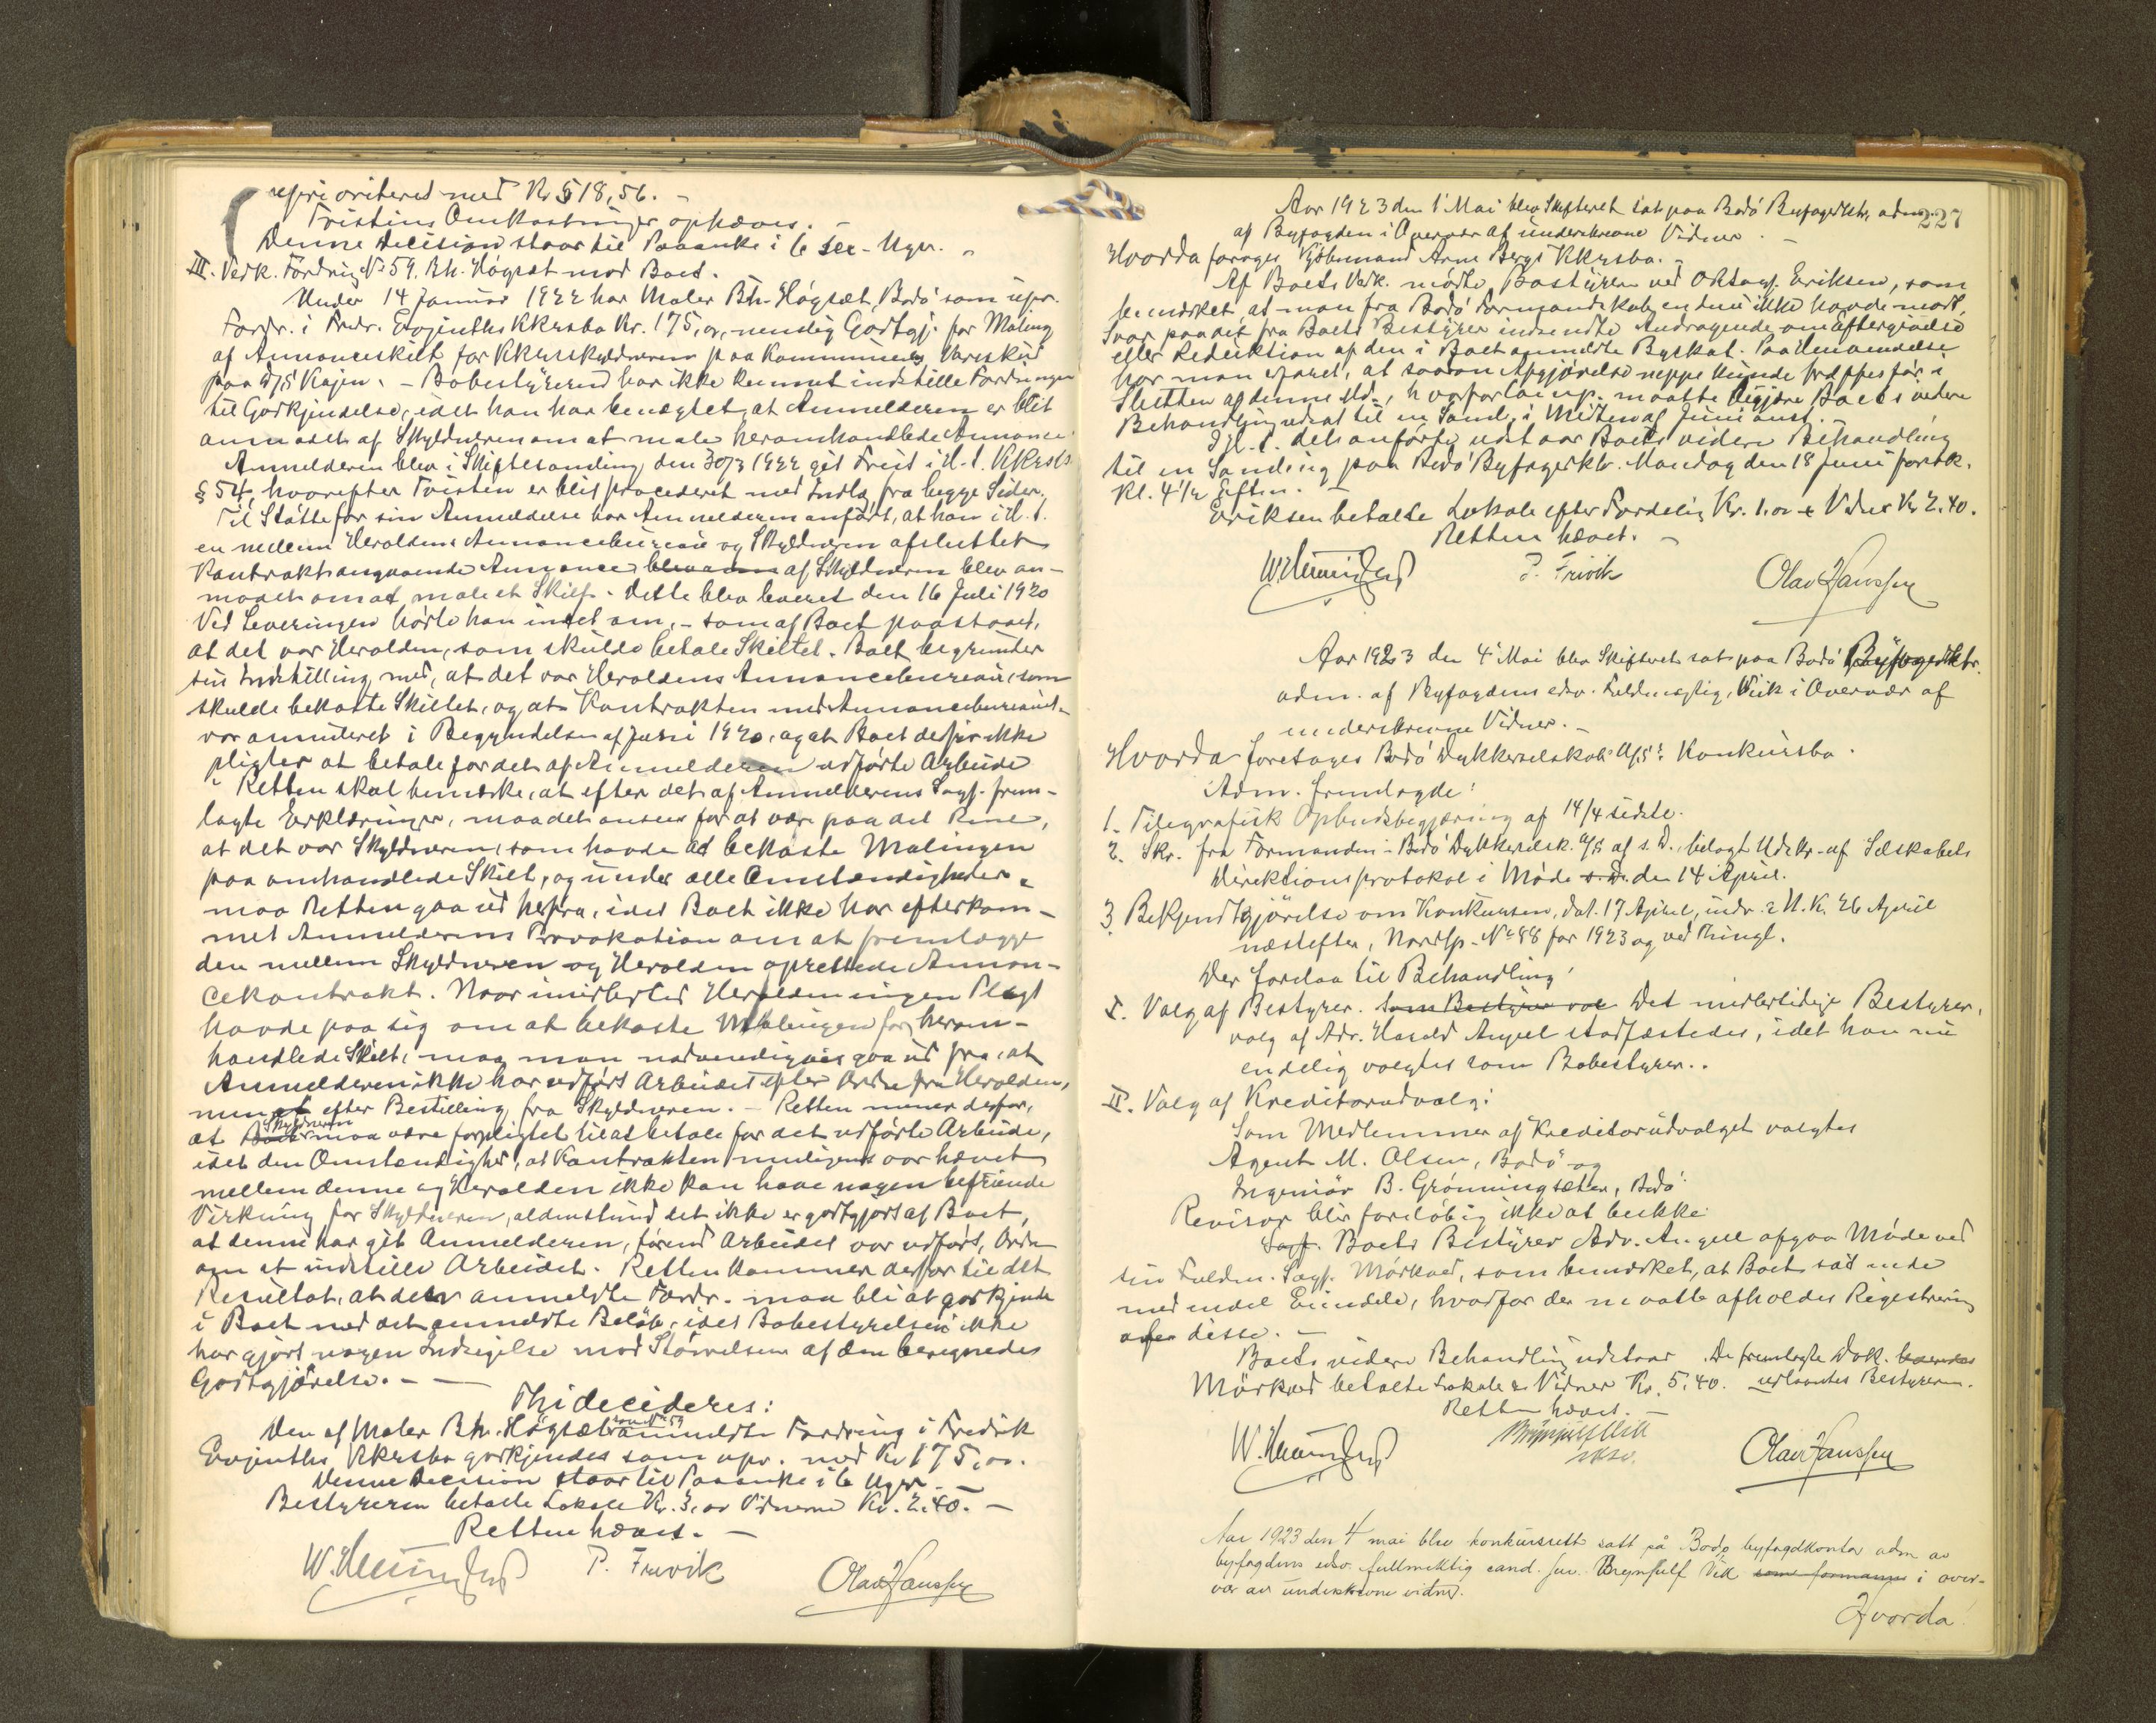 uprioriteret med Kr 518,56. -
Tvistens Omkostninger ophæves. -
Denne Decision staar til Paaanke i 6 sex - Uger. -
III. Vedk. Fordring No 59. Bh. Høgset mod Boet.
Under 14 Januar 1922 har Maler Bh. Høgset, Bodø som upr.
Fordr. i Fredr. Evjenths Kkrsbo Kr. 175,00, nemlig Godtgj. for Maling
af Annonceskilt for Kkursskyldneren paa Kommunens
paa D/S Kajen. - Bobestyreren har ikke kunnet indstille Fordringen
til Godkjendelse, idet han har benægtet, at Anmelderen er blit
anmodet af Skyldneren om at male heromhandlede Annonce.
Anmelderen blev i Skiftesamling den 30/3 1922 git Frist i H. t. Kkrsl's
§ 54, hvorefter Tvisten er blit procederet med Indlæg fra begge Sider.
Til Støtte for sin Anmeldelse har Anmelderen anført, at han i H. t.
en mellem Heroldens Annoncebureau og Skyldneren afsluttet
Kontrakt angaaende Annonce blev af Skyldneren blev an-
modet om at male et Skilt. Dette blev leveret den 16 Juli 1920
Ved Leveringen hørte han intet om, - som af Boet paastaaet,
at det var Herolden, som skulde betale Skiltet. Boet begrunder
sin Indstilling med, at det var Heroldens Annoncebureau, som
skulde bekoste Skiltet, og at Kontrakten med Annoncebureauet
var annuleret i Begyndelsen af Juni 1920, og at Boet derfor ikke
pligter at betale for det af Anmelderen udførte Arbeide
Retten skal bemærke, at efter det af Anmelderens Sagf. frem-
lagte Erklæringer, maa det ansees for at være paa det Rene,
at det var Skyldneren, som havde at bekoste Malingen
paa omhandlede Skilt, og under alle Omstændigheder
maa Retten gaa ud herfra, idet Boet ikke har efterkom-
met Anmelderens Provokation om at fremlægge
den mellem Skyldneren og Herolden oprettede Annon-
cekontrakt. Naar imidlertid Herolden ingen Pligt
havde paa sig om at bekoste Malingen for herom-
handlede Skilt, maa man nødvendigvis gaa ud fra, at
Anmelderen ikke har udført Arbeidet efter Ordre fra Herolden,
men at efter Bestilling fra Skyldneren. - Retten mener derfor,
at Boet Skyldneren maa være forpligtet til at betale for det udførte Arbeide,
idet den Omstændighed, at Kontrakten muligens var hævet
mellem denne og Herolden ikke kan have nogen befriende
Virkning for Skyldneren, aldenstund det ikke er godtgjort af Boet,
at denne har git Anmelderen, førend Arbeidet var udført, Ordre
om at indstille Arbeidet. Retten kommer derfor til det
Resultat, at den anmeldte Fordr. maa bli at godkjende
i Boet med det anmeldte Beløb, idet Bobestyrelsen ikke
har gjort nogen Indsigelse mod Størrelsen af den beregnede
Godtgjørelse. - -
Thi decideres:
Den af Maler Bh. Høgset som No 59 anmeldte Fordring i Fredrik
Evjenths Kkrsbo godkjendes som upr. med Kr 175,00.
Denne Decision staar til Paaanke i 6 Uger. -
Bestyreren betalte Lokale Kr. 3,00 Vidnerne Kr. 2.40. -
Retten hævet. -
P. Frivik
Olav Hanssen
227
Aar 1923 den 1 Mai blev Skifteret sat paa Bodø Byfogedktr, adm.
af Byfogden i Overvær af underskrevne Vidner. -
Hvorda foretages Kjøbmand Arne Bergs Kkrsbo. -
Af Boets Vedk. mødte Bestyreren ved Eriksen, som
bemærket, at man fra Bodø Formandskab endnu ikke havde mod.
Svar paa det fra Boets Bestyrer indsendte Andragende om Eftergivelse
eller Reduktion af den i Boet anmeldte Byskat. Paa Henvendelse
har man erfaret, at saadan Afgjørelse neppe kunde træffes før i
Slutten af denne Md., hvorfor maatte begjære Boets videre
Behandling udsat til en Saml. i Midten af Juni
I H. t. det anførte udstaar Boets videre Behandling
til en Samling paa Bodø Byfogedktr. Mandag den 18 Juni førstk.
Kl. 4½ Eftm. -
Eriksen betalte Lokale efter Fordeling Kr. 1,00 + Vidner Kr 2.40.
Retten hævet. -
P. Frivik
Olav Hanssen
Aar 1923 den 4 Mai blev Skifteret sat paa Bodø Byfogedktr.
adm. af Byfogdens edsv. Fuldmægtig, Vik i Overvær af
underskrevne Vidner. -
Hvorda foretages Bodø Dykkerselskab A/S's Konkursbo.
Adm. fremlagde:
1. Telegrafisk Opbudsbegjæring af 14/4 sidste.
2. Skr. fra Formanden i Bodø Dykkerselsk. A/S af s. D., bilagt Udskr. af Selskabets
Direktionsprotokol i Møde s. D. den 14 April.
3. Bekjendtgjørelse om Konkursen, dat. 17 April, indr. i N. K. 26 April
næstefter, Nordlp. No 88 for 1923 og ved Thingl.
Der forelaa til Behandling:
I. Valg af Bestyrer. Som Bestyrer val Det midlertidige Bestyrer-
valg af Adv. Harald Angell stadfæstedes, idet han nu
endelig valgtes som Bobestyrer. .
II. Valg af Kreditorudvalg:
Som Medlemmer af Kreditorudvalget valgtes
Agent M. Olsen, Bodø og
Ingeniør B. Grønningsæter, Bodø
Revisor blir foreløbig ikke at beskikke
Sagf. Boets Bestyrer Adv. Angell afgav Møde ved
sin Fuldm. Sagf. Mørkved, som bemærket, at Boet sad inde
med endel Eiendele, hvorfor der maatte afholdes Registrering
over disse. -
Boets videre Behandling udstaar. De fremlagte Dok.
Mørkved betalte Lokale & Vidner Kr. 5.40. udlaantes Bestyreren.
Retten hævet. -
Brynjulf Vik
edsv.
Olav Hanssen
Aar 1923 den 4 mai blev konkursrett satt på Bodø byfogdkontor adm av
byfogdens edsv. fullmektig cand. jur. Brynjulf Vik som formann i over-
vær av underskrevne vidner.
Hvorda